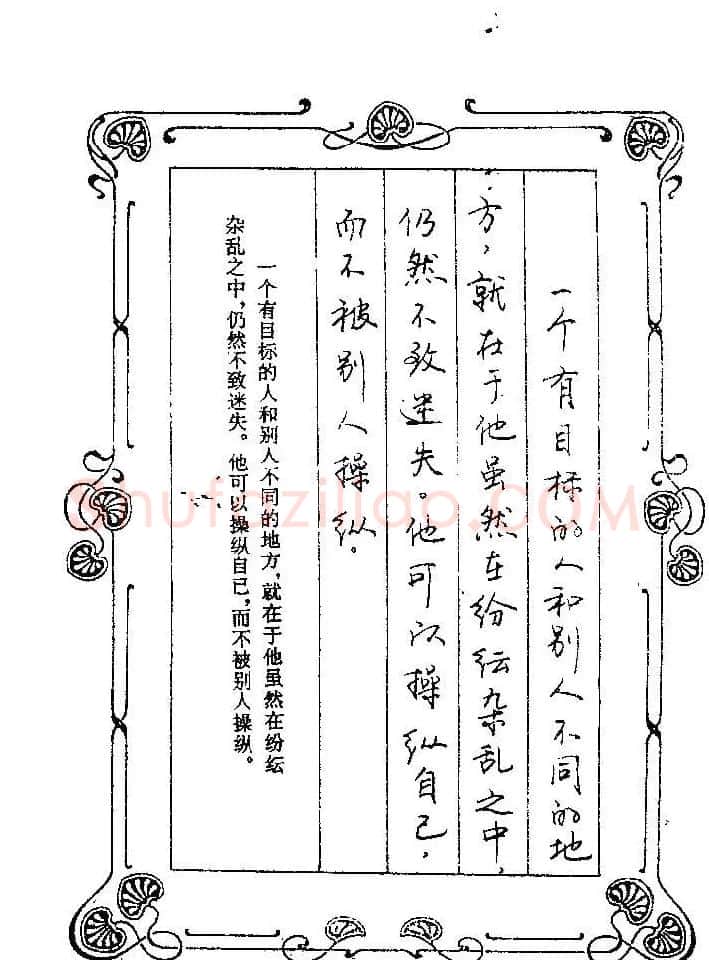 一个有目标的人和别人不同的地
方，就在于他虽然在纷纭杂乱之中，
仍然不致迷失。他可以操纵自己，
而不被别人操纵。
一个有目标的人和别人不同的地方，就在于他虽然在纷纭
杂乱之中，仍然不致迷失。他可以操纵自己，而不被别人操纵。
Shufaziliao.COM